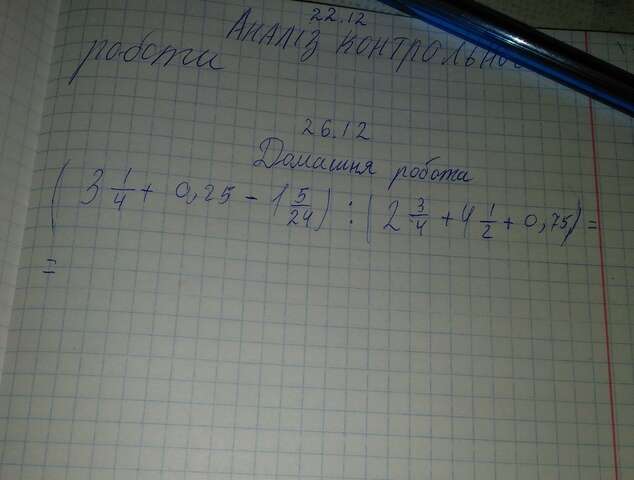 22.12
Аналіз контрольної
роботи
26.12
Домашня робота
(3 1/4 + 0,25 - 1 5/24) : (2 3/4 + 4 1/2 + 0,75) =
=